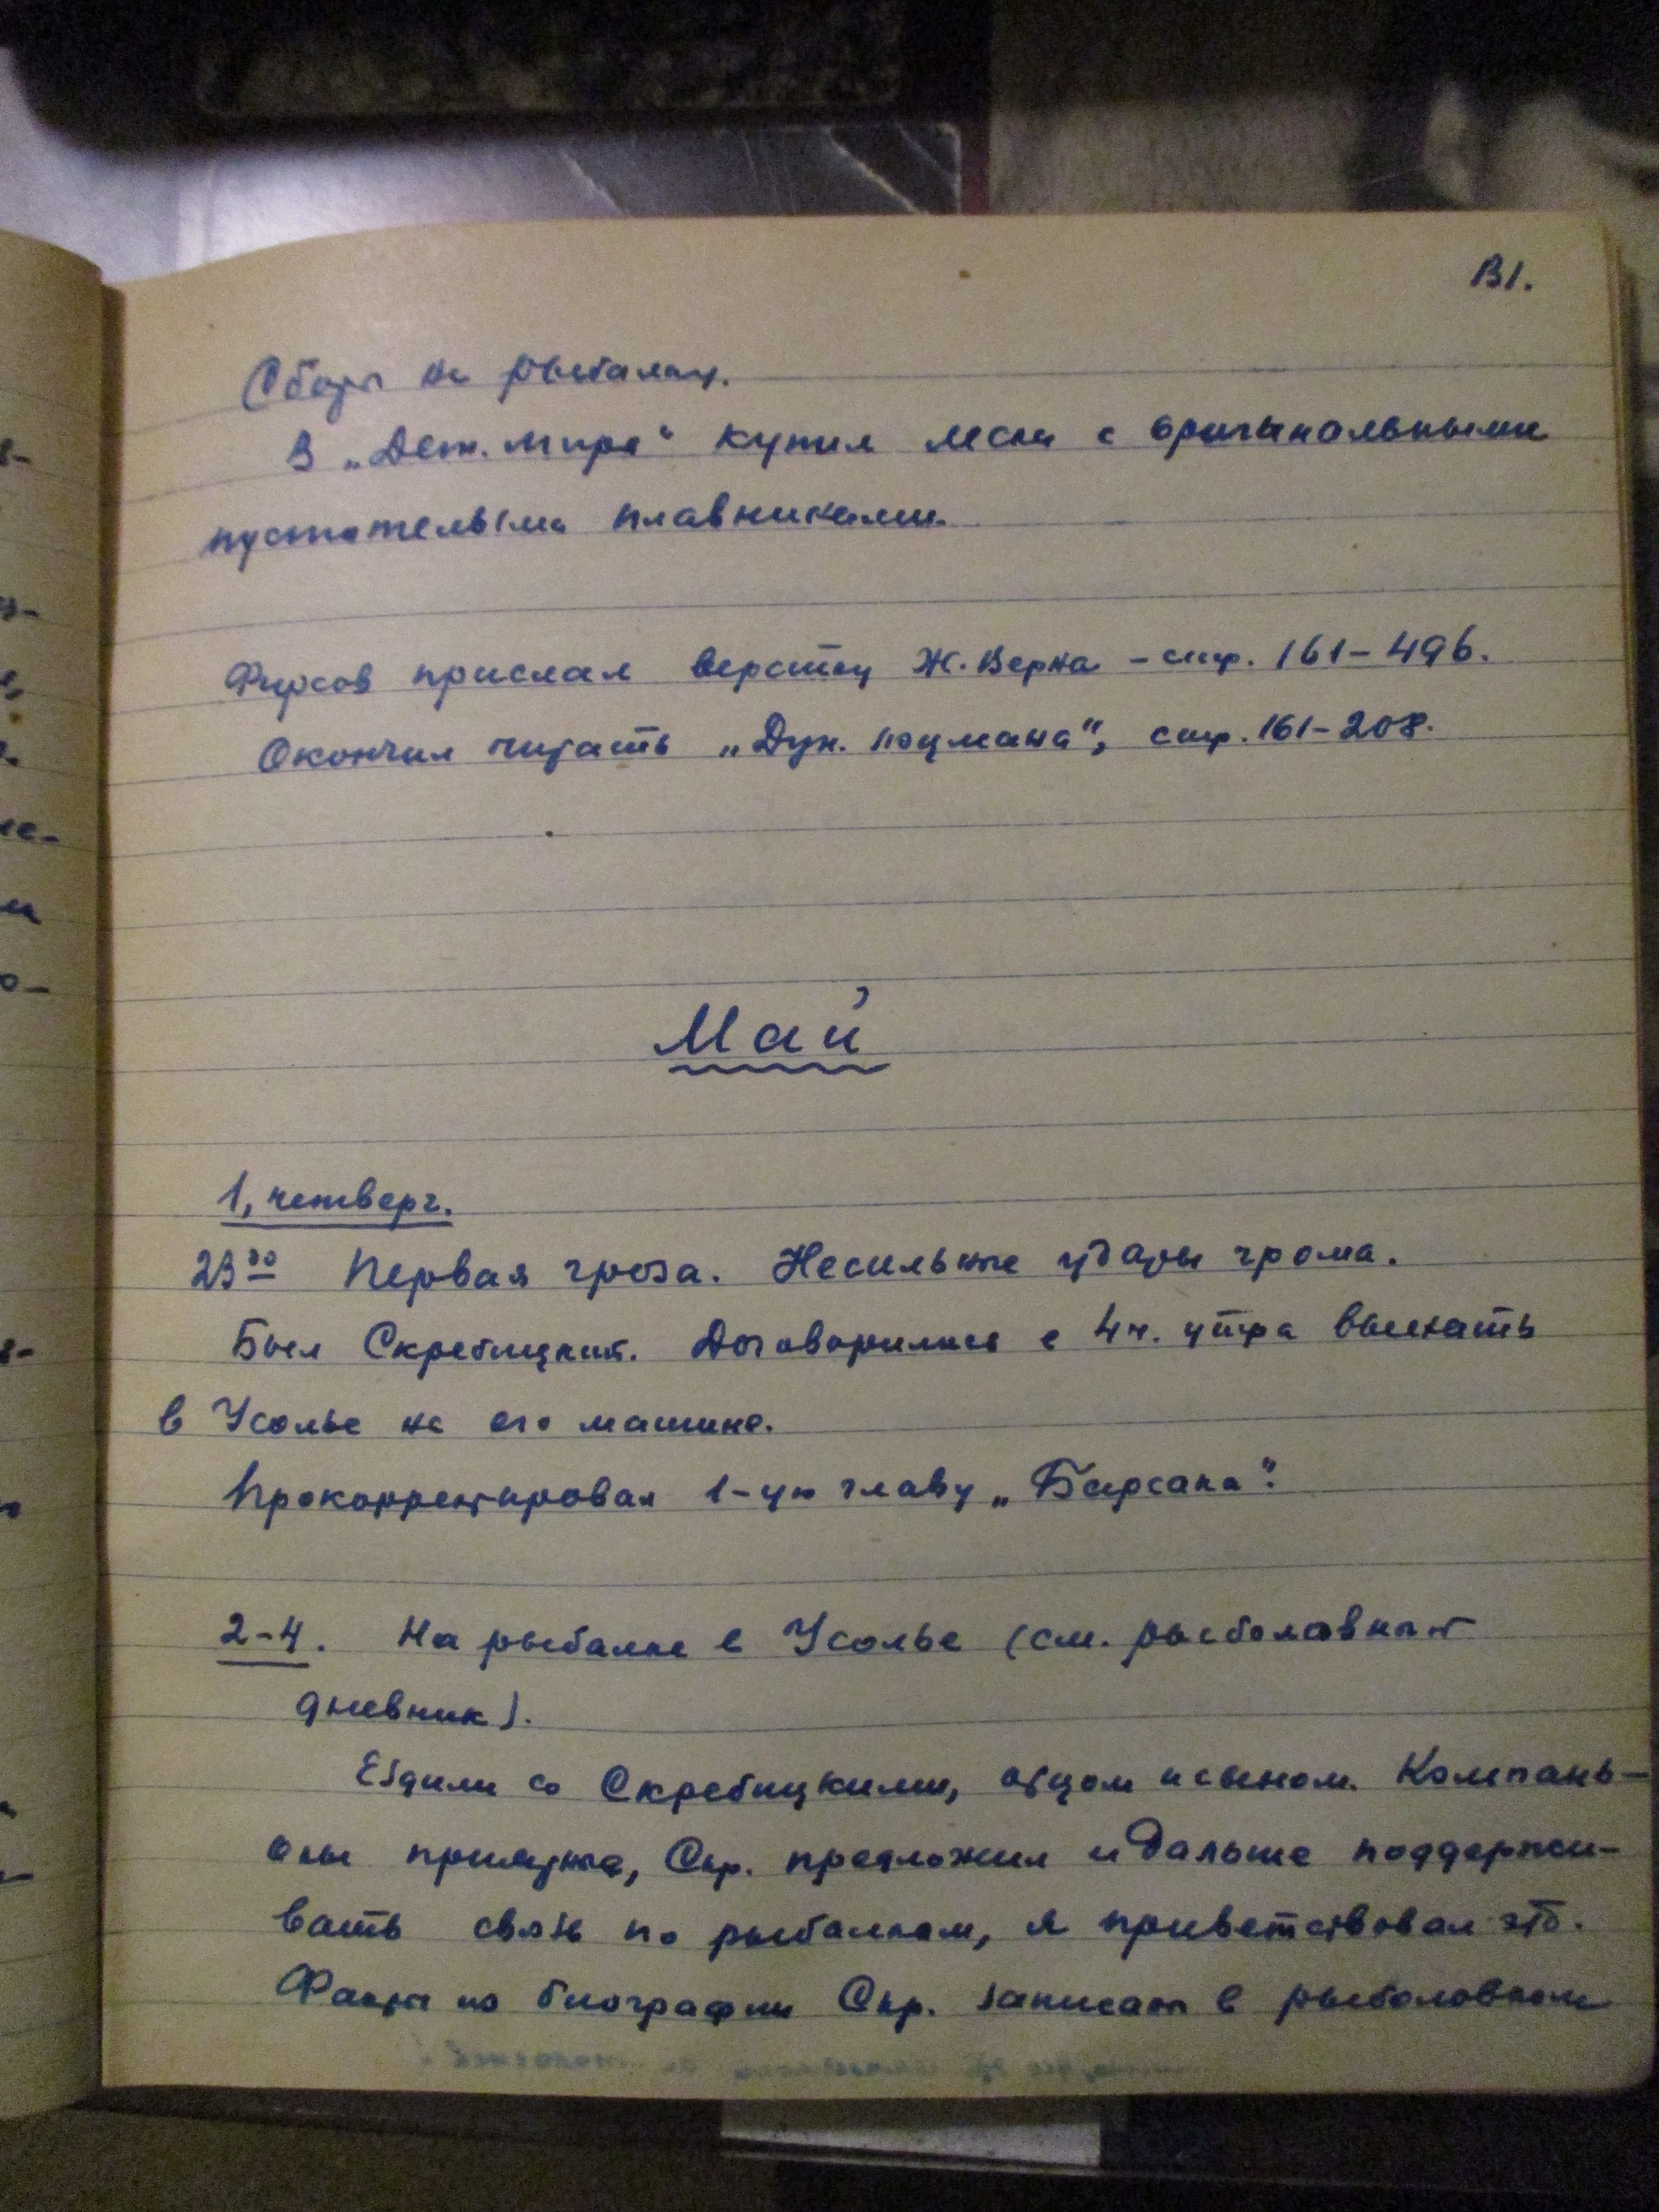 131.
Сборы на рыбалку.
В „Дет. мире“ купил лески с оригинальными
пустотелыми плавниками.
Фирсов прислал верстку Ж. Верна – стр. 161–496.
Окончил читать „Дун. лоцмана“, стр. 161–208.
Май
1, четверг.
23 30 Первая гроза. Несильные удары грома.
Был Скребицкий. Договорились в 4 ч. утра выехать
в Усолье на его машине.
Прокорректировал 1-ую главу „Барсака“.
2–4. На рыбалке в Усолье (см. рыболовный
дневник).
Ездили со Скребицкими, отцом и сыном. Компань-
оны приятные, Скр. предложил и дальше поддержи-
вать связь по рыбалкам, я приветствовал это.
Факты из биографии Скр. записаны в рыболовном